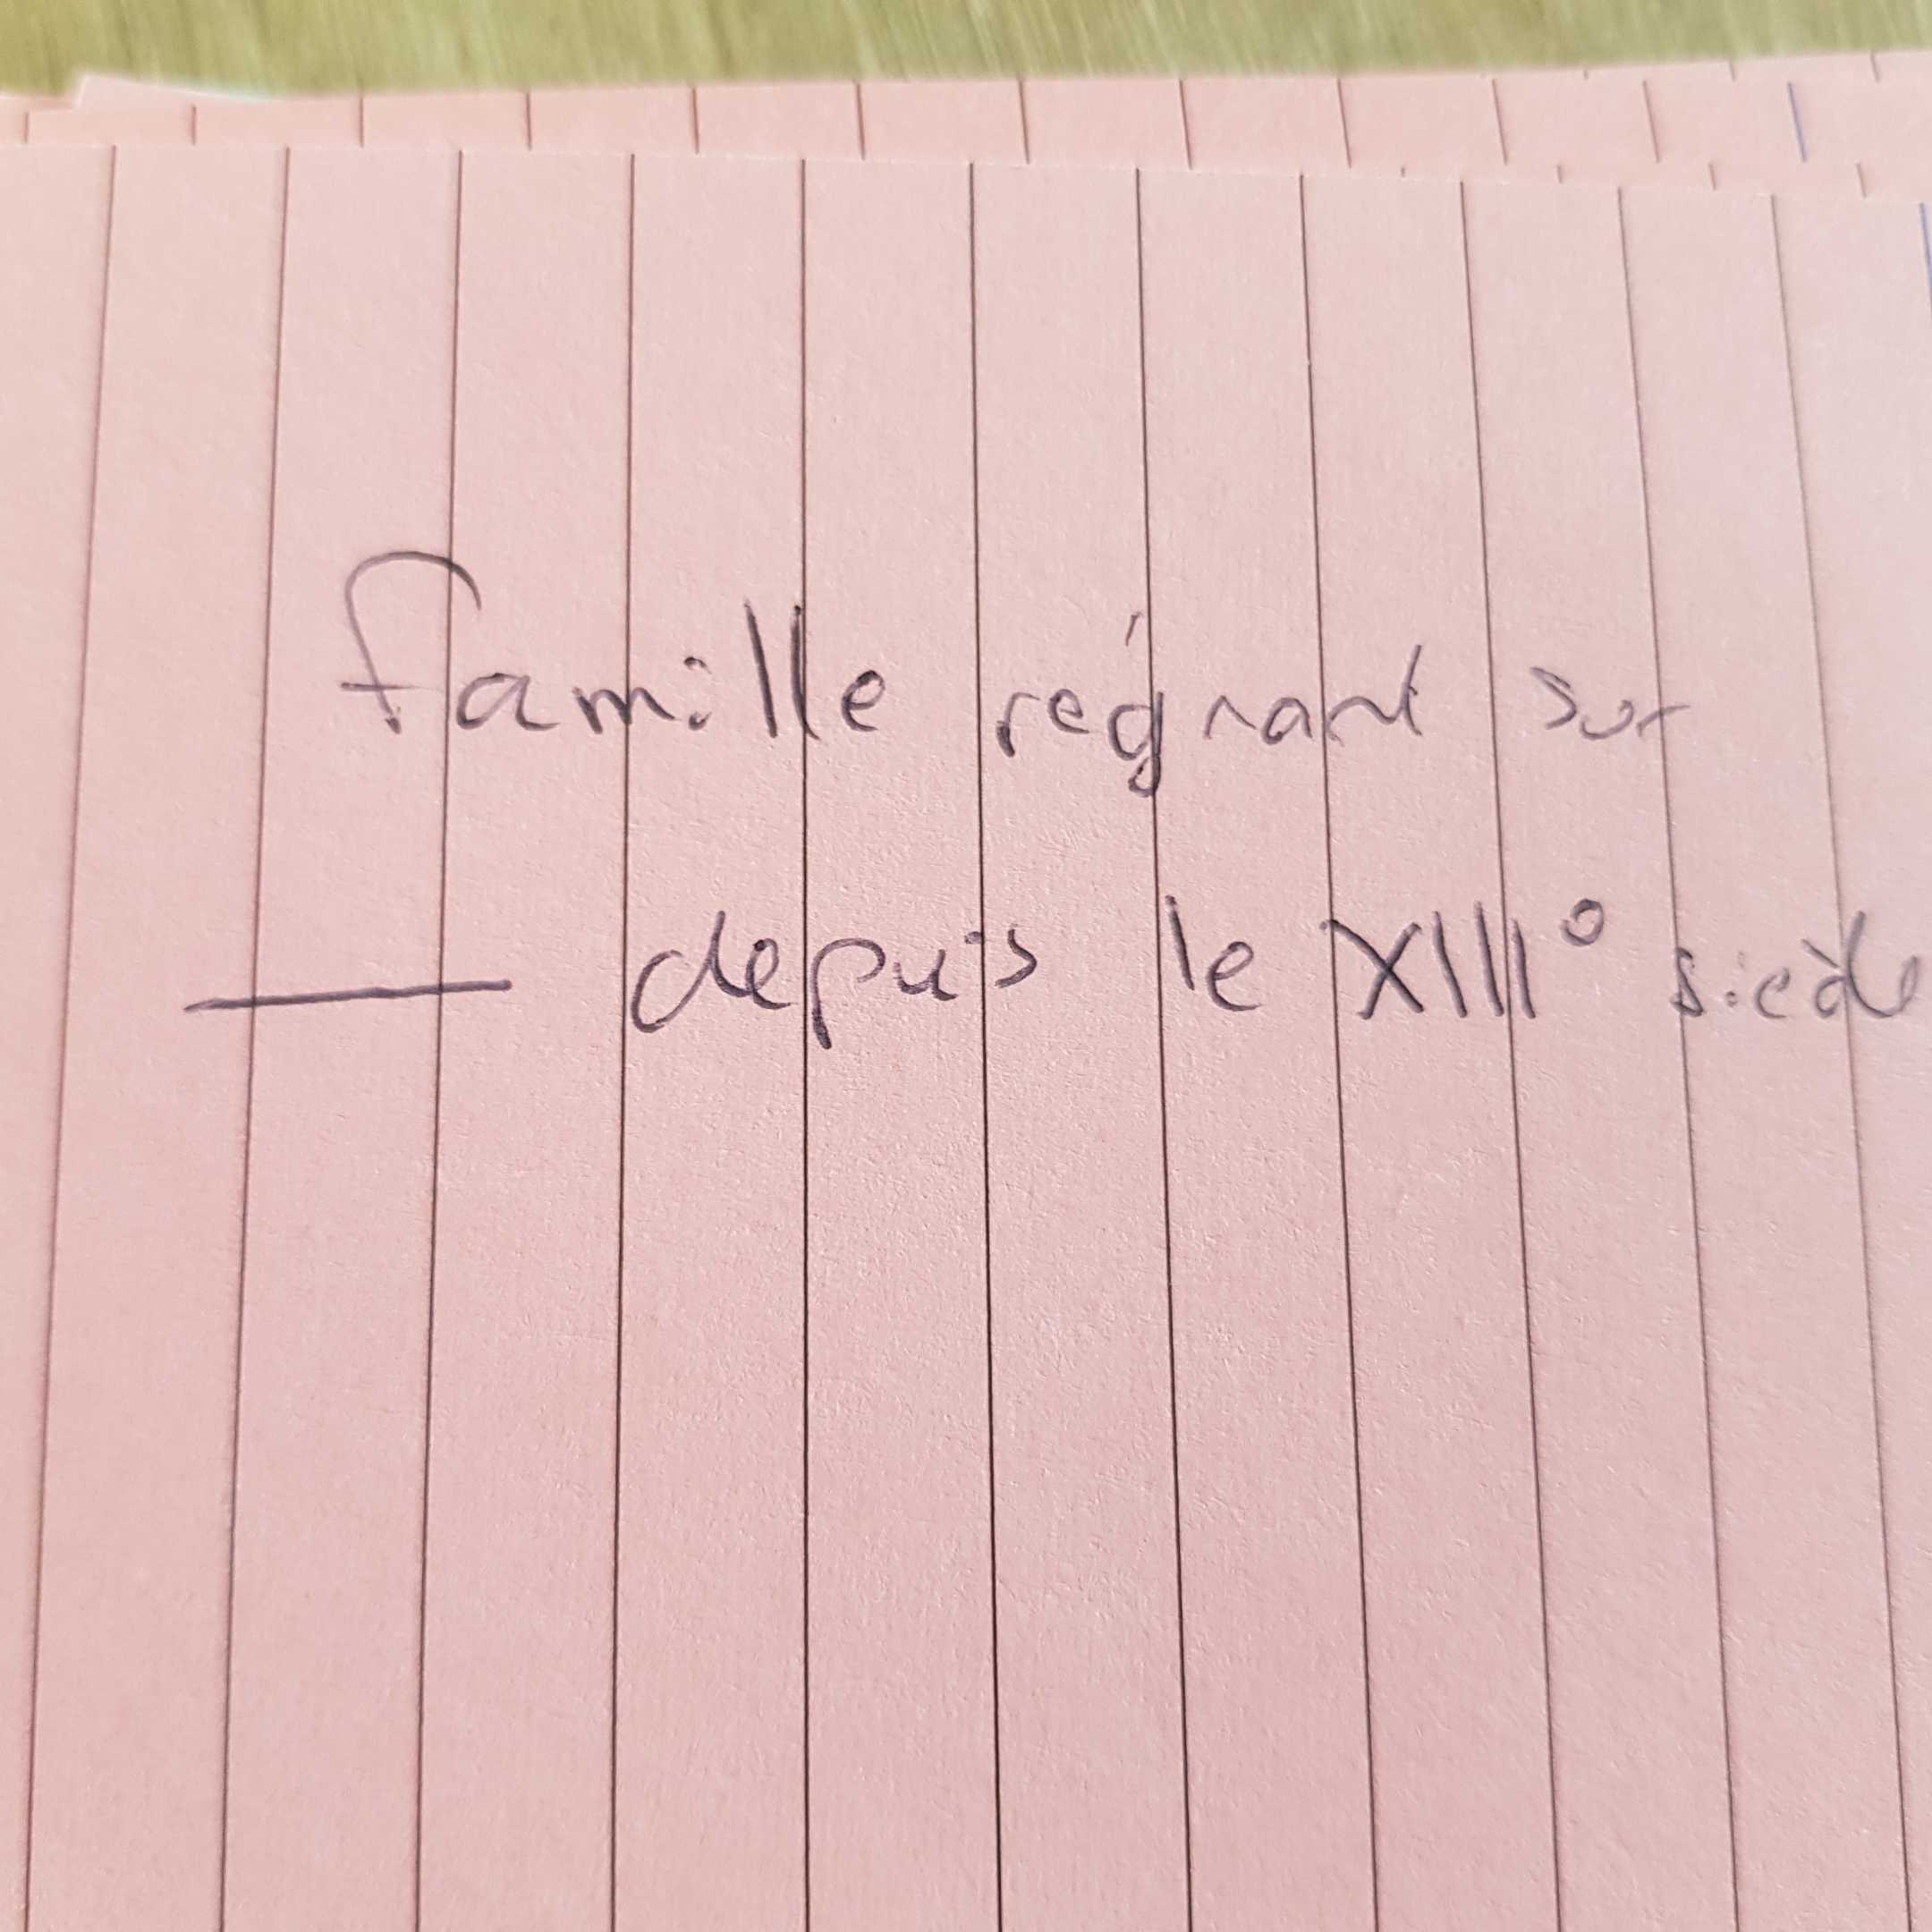 famille régnant sur
— depuis le XIII° siècle